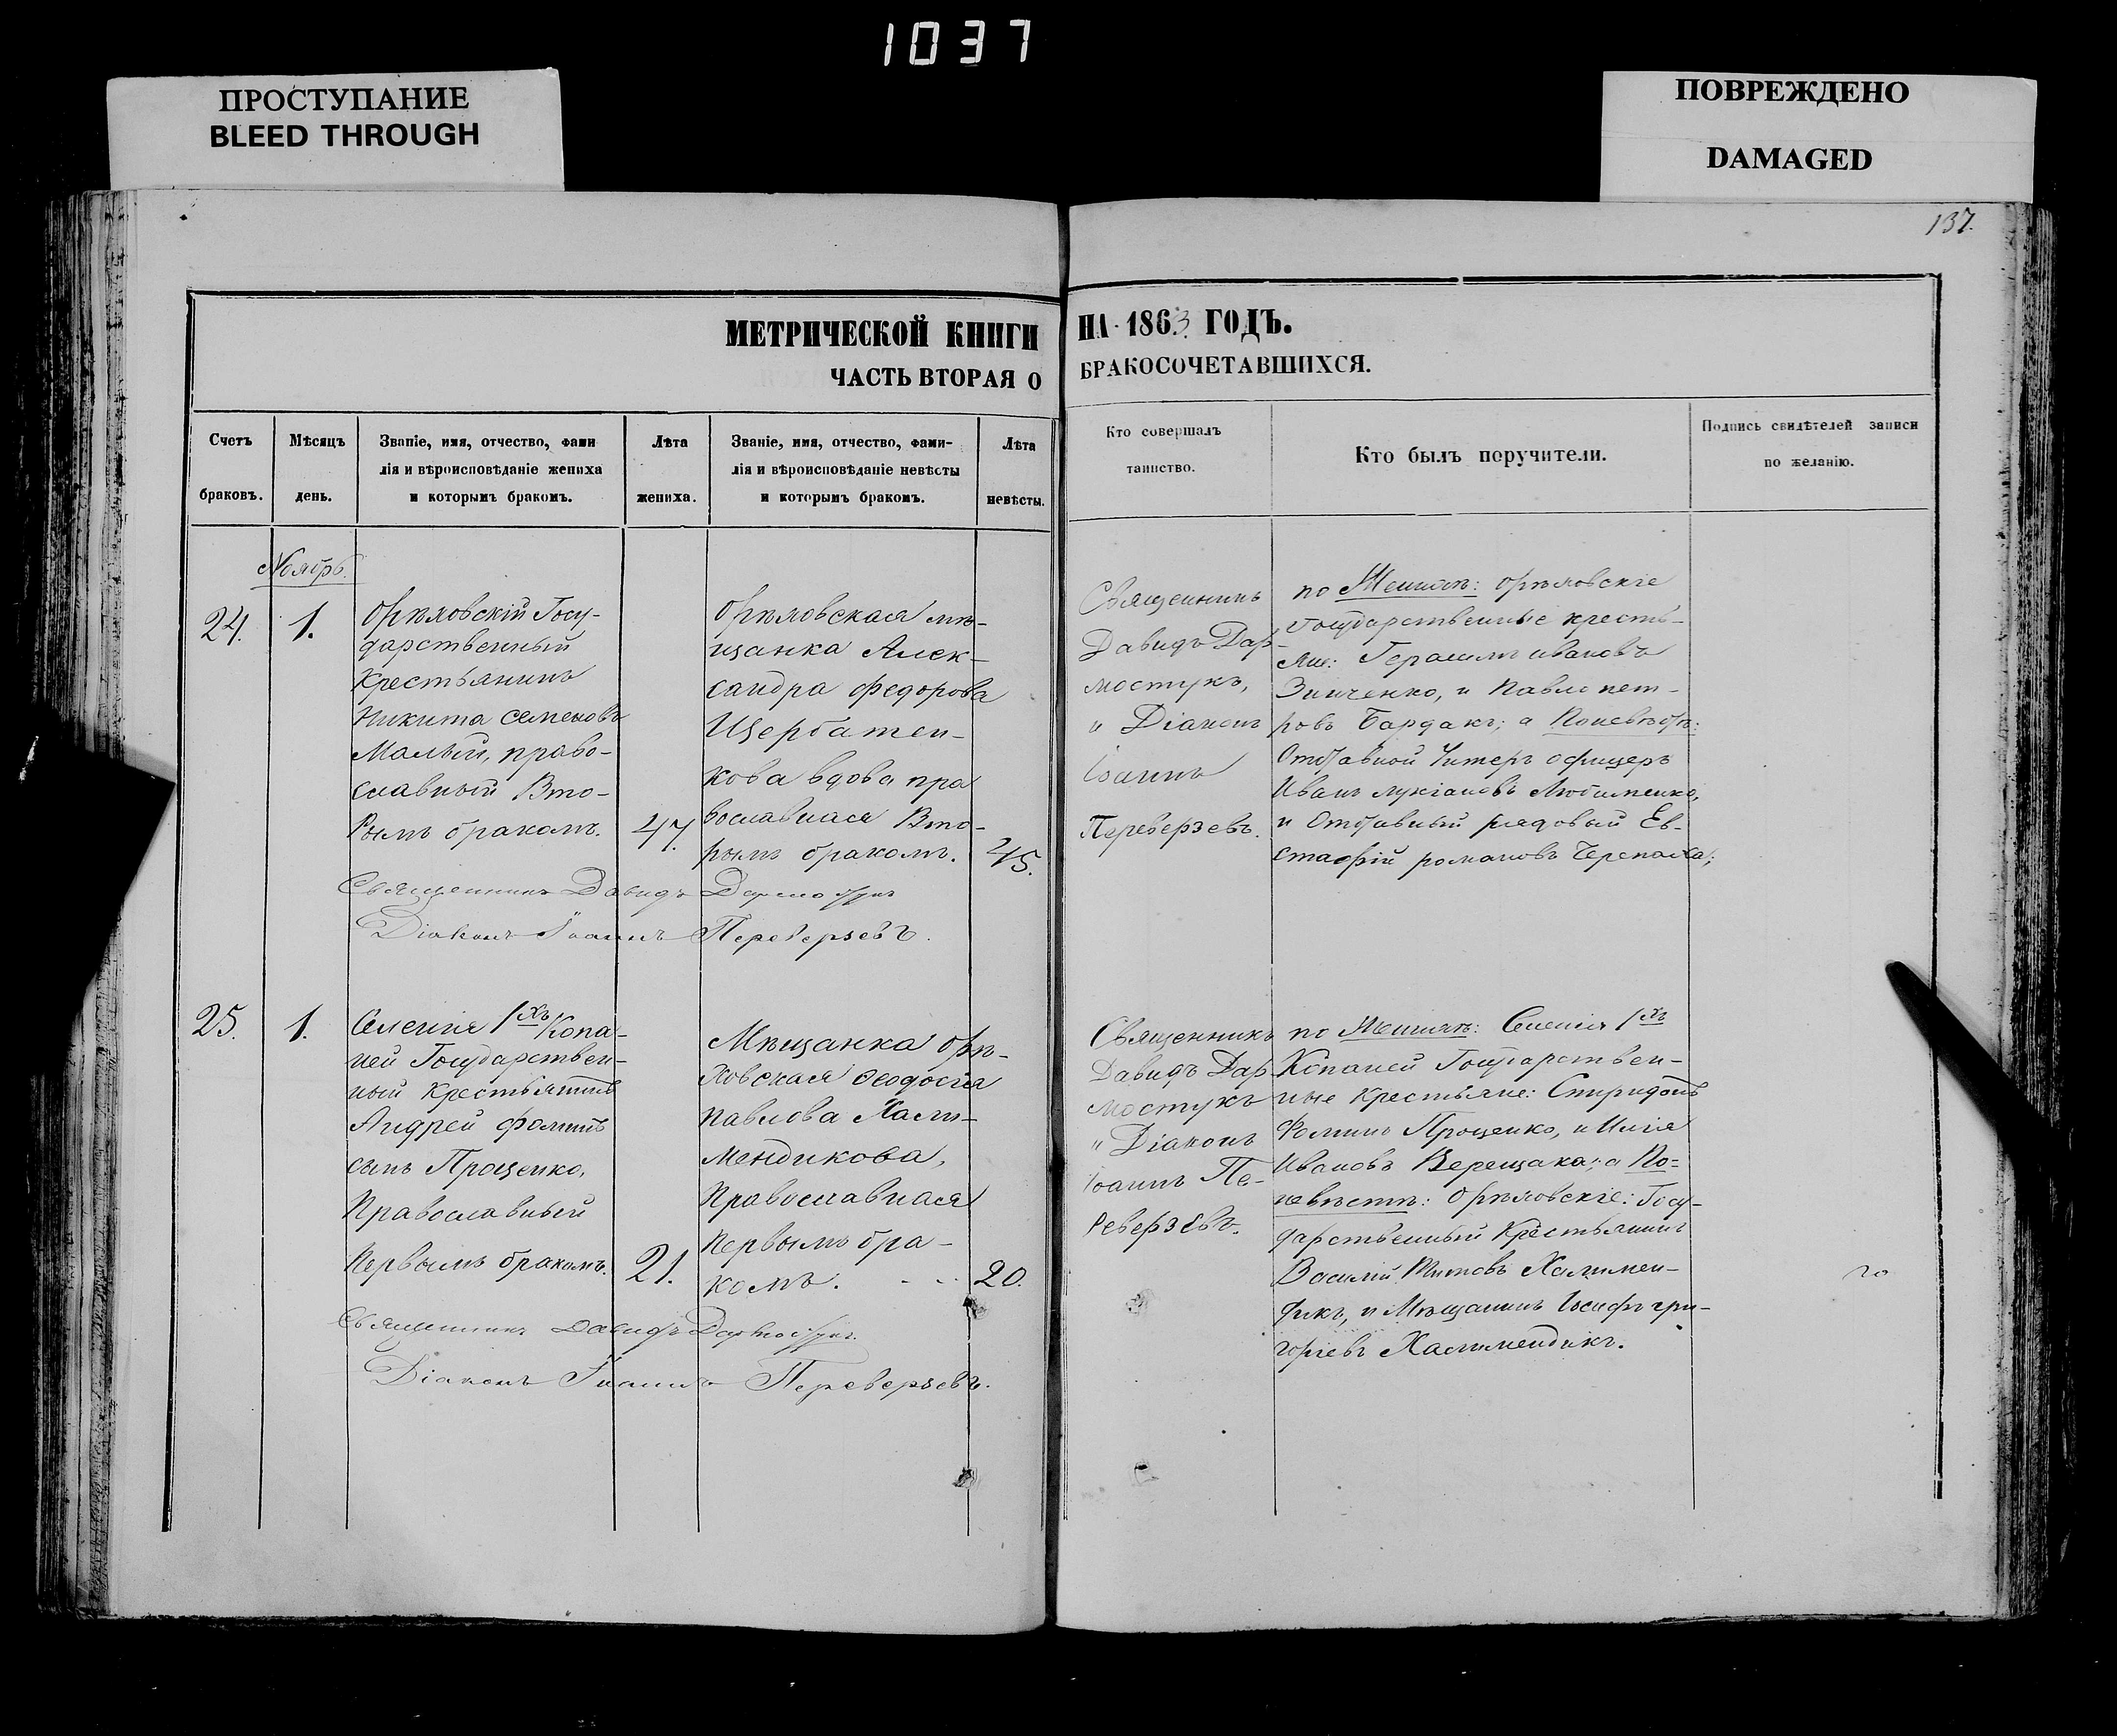 1037
ПРОСТУПАНИЕ
BLEED THROUGH
ПОВРЕЖДЕНО
DAMAGED
137.
МЕТРИЧЕСКОЙ КНИГИ НА 1863 ГОДЪ.
ЧАСТЬ ВТОРАЯ О БРАКОСОЧЕТАВШИХСЯ.
Счетъ
браковъ.
Мѣсяцъ
день.
Званіе, имя, отчество, фами
лія и вѣроисповѣданіе жениха
и которымъ бракомъ.
Лѣта
жениха.
Званіе, имя, отчество, фами-
лія и вѣроисповѣданіе невѣсты
и которымъ бракомъ.
Лѣта
невѣсты.
Кто совершалъ
таинство.
Кто былъ поручители.
Подпись свидѣтелей записи
по желанію.
Ноябрь.
24.
1.
Орѣховскій Госу-
дарственный
Крестьянинъ
Никита Семеновъ
Малый, право-
славный Вто-
рымъ бракомъ.
47.
Орѣховская мѣ-
щанка Алек-
сандра Федорова
Щербатен-
кова вдова пра
вославная Вто-
рымъ бракомъ.
45.
Священникъ
Давидъ Дар-
мостукъ,
" Діаконъ
Іоаннъ
Переверзевъ.
по Женихѣ: Орѣховскіе
Государственные кресть-
яне: Герасимъ Ивановъ
Зинченко, и Павло Пет-
ровъ Бардакъ; а По невѣстѣ:
Отставной Унтеръ офицеръ
Иванъ Лукіановъ Любименко,
и Отставный рядовый Ев-
стафій Романовъ Черепаха;
Священникъ Давидъ Дармостукъ
Діаконъ Іоаннъ Переверзевъ.
25.
1.
Селенія 1хъ Копа-
ней Государствен-
ный Крестьянинъ
Андрей Фоминъ
сынъ Проценко,
Православный
Первымъ бракомъ.
21.
Мѣщанка Орѣ-
ховская Феодосія
Павлова Хали-
мендикова,
Православная
Первымъ бра-
комъ.
20.
Священникъ
Давидъ Дар-
мостукъ
" Діаконъ
Іоаннъ Пе-
реверзевъ.
по Женихѣ: Селенія 1хъ
Копаней Государствен-
ные Крестьяне: Спиридонъ
Фоминъ Проценко, и Илія
Ивановъ Верещака; а По-
невѣстѣ: Орѣховскіе: Госу-
дарственный Крестьянинъ
Василій Титовъ Халимен-
дикъ, и Мѣщанинъ Іосифъ Гри-
горіевъ Халимендикъ.
Священникъ Давидъ Дармостукъ.
Діаконъ Іоаннъ Переверзевъ.